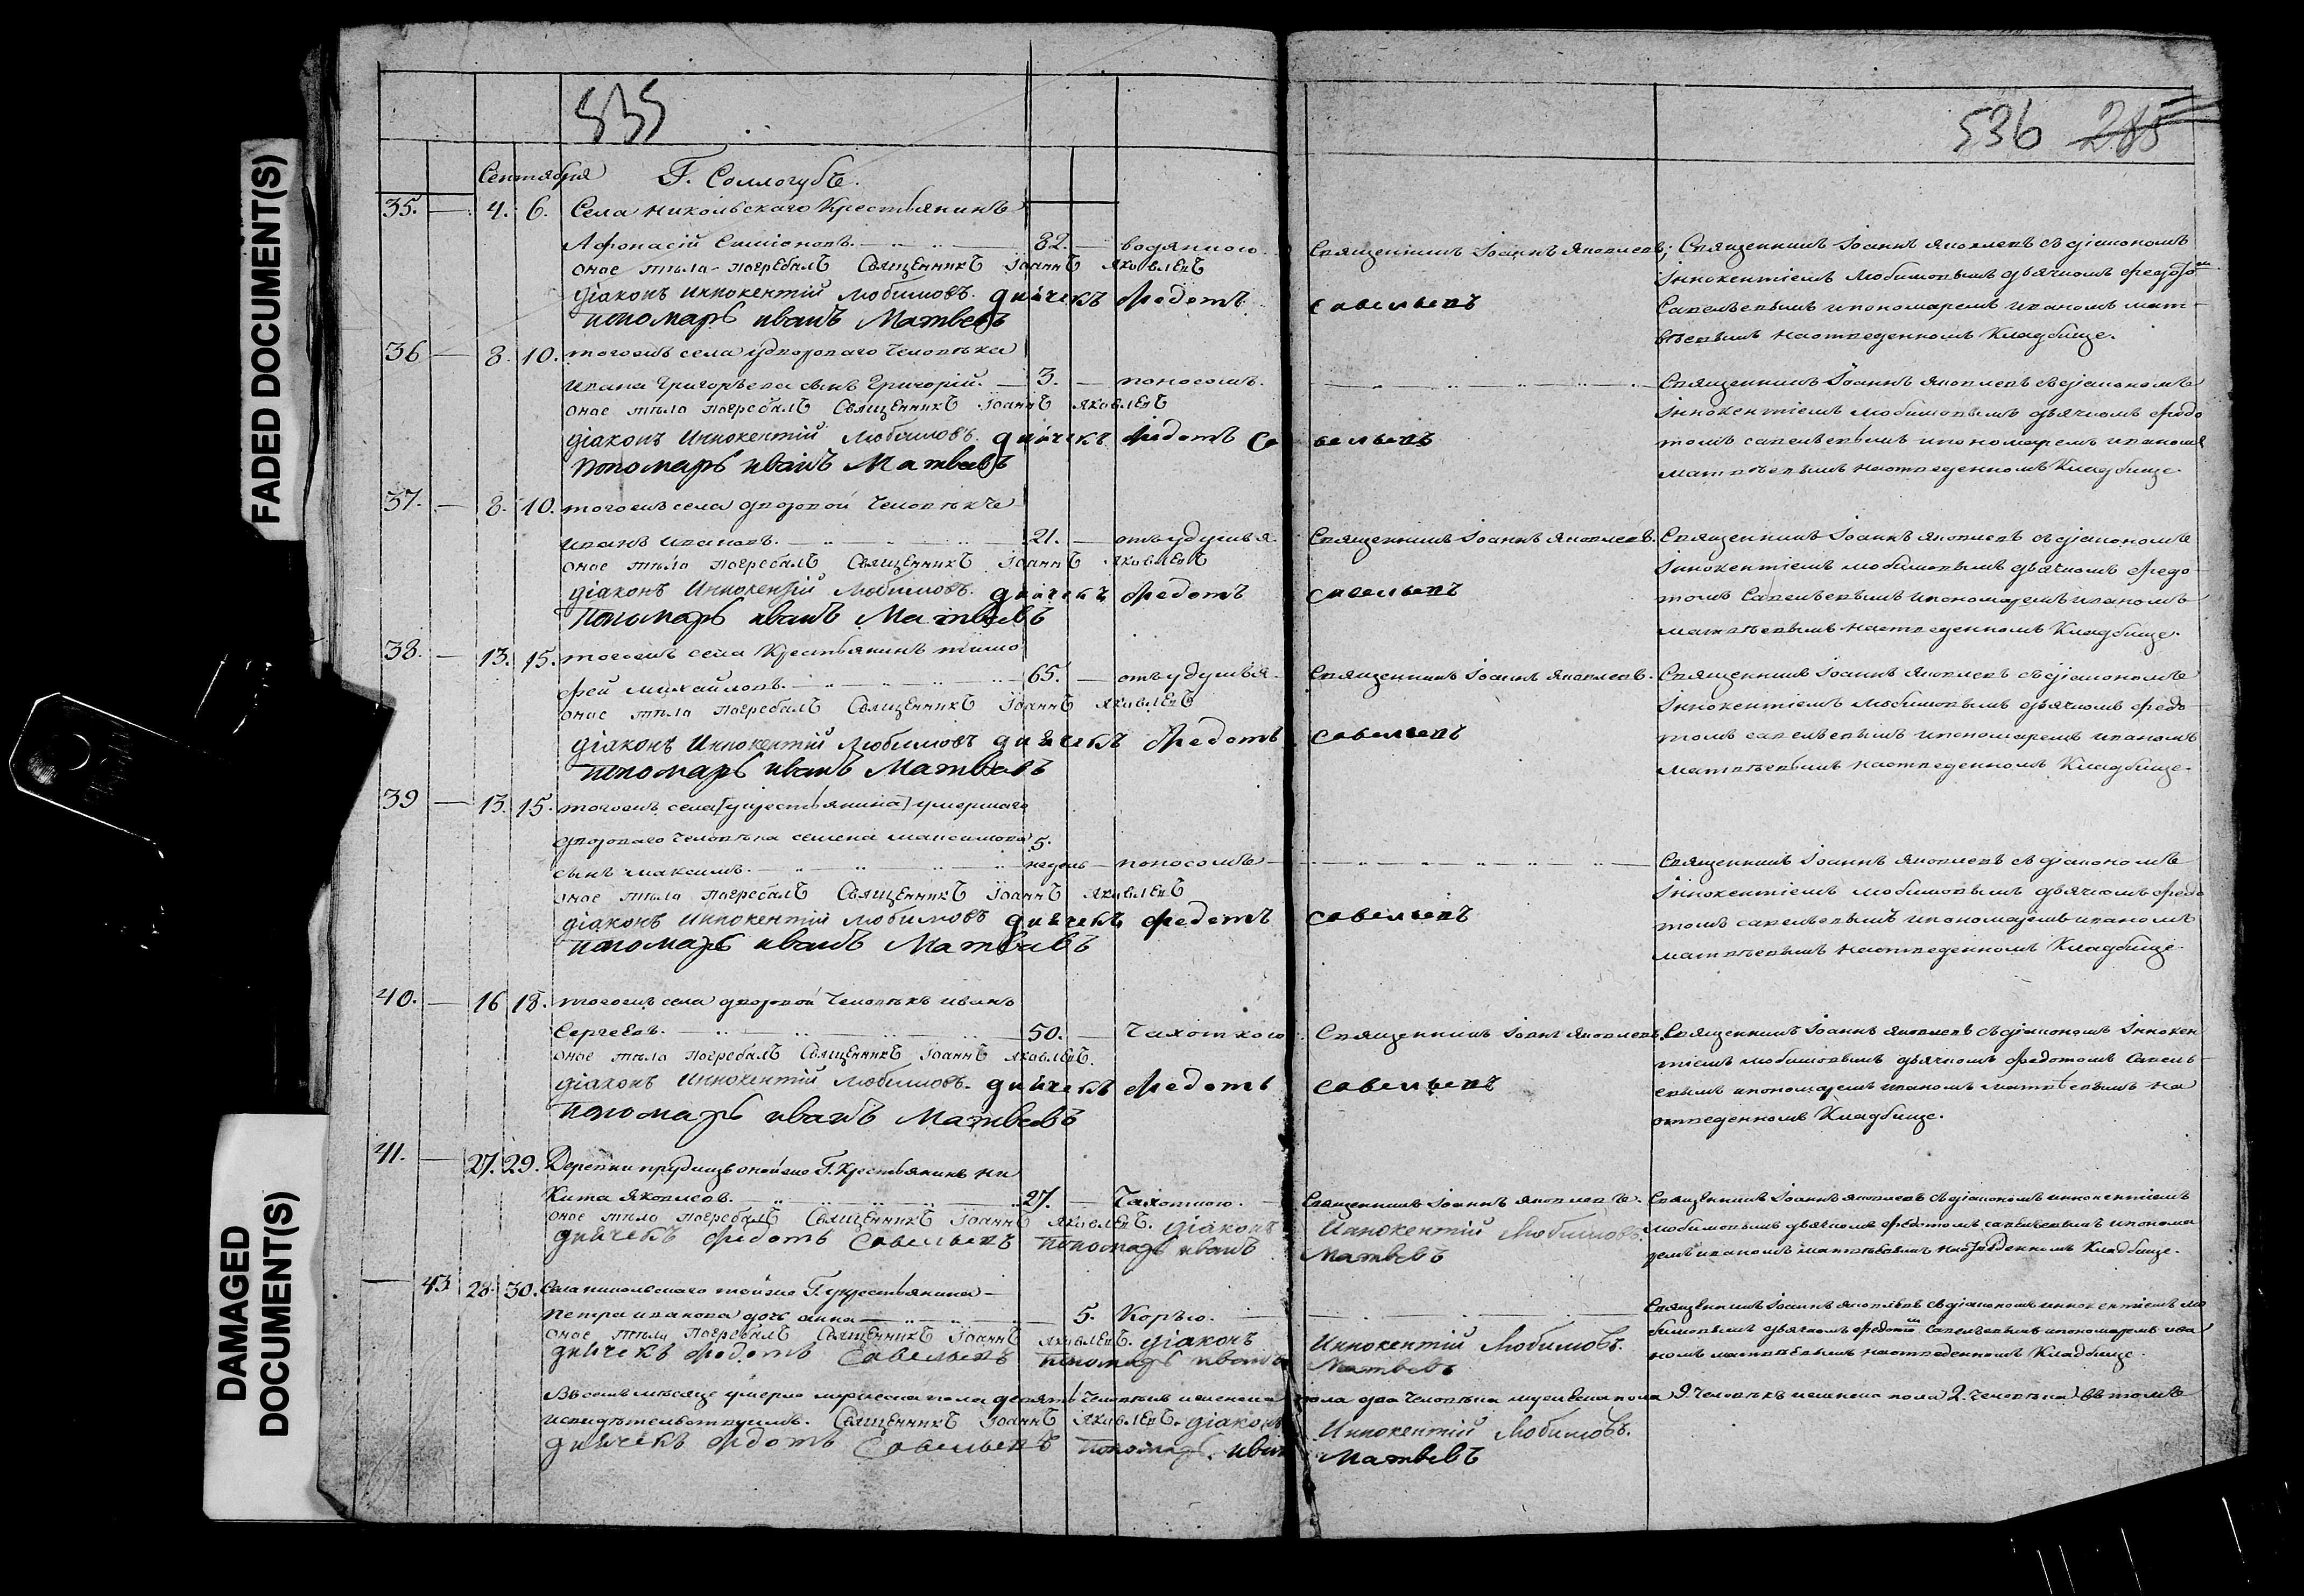 FADED DOCUMENT(S)
DAMAGED DOCUMENT(S)
535
536 285
Сентября Г. Соллогубъ.
35. — 4. 6. Села Никольскаго Крестьянинъ
Афонасій Симіоновъ. 82. — водяною. Священникъ Іоаннъ Яковлевъ; Священникъ Іоаннъ Яковлевъ съ діакономъ
оное тѣло погребалъ Священникъ Іоаннъ Яковлевъ Іннокентіемъ Любимовымъ дьячкомъ Федотомъ
діаконъ Иннокентій Любимовъ. дьячекъ Федотъ Савельевъ Савельевымъ и пономаремъ Иваномъ Мат-
пономарь Иванъ Матвеевъ вѣевымъ на отведенномъ Кладбище.
36 — 8. 10. тогожъ села у двороваго Человѣка
Ивана Григорьева сынъ Григорій. — 3. — поносомъ. Священникъ Іоаннъ Яковлевъ съ діакономъ
оное тѣло погребалъ Священникъ Іоаннъ Яковлевъ Іннокентіемъ Любимовымъ дьячкомъ Федо
діаконъ Иннокентій Любимовъ. дьячекъ Федотъ Савельевъ томъ Савельевымъ и пономаремъ Иваномъ
пономарь Иванъ Матвевъ Матвѣевымъ на отведенномъ Кладбище
37. — 8. 10. тогожъ села дворовой Человѣкъ
Иванъ Ивановъ. 21. — отъ удушья. Священникъ Іоаннъ Яковлевъ. Священникъ Іоаннъ Яковлевъ съ діакономъ
оное тѣло погребалъ Священникъ Іоаннъ Яковлевъ Іннокентіемъ Любимовымъ дьячкомъ Федо
діаконъ Иннокентій Любимовъ. дьячекъ Федотъ Савельевъ томъ Савельевымъ и пономаремъ Иваномъ
пономарь Иванъ Матвеевъ Матвѣевымъ на отведенномъ Кладбище.
38. — 13. 15. тогожъ села Крестьянинъ Тимо
фей Михайловъ. 65. — отъ удушья. Священникъ Іоаннъ Яковлевъ. Священникъ Іоаннъ Яковлевъ съ діакономъ
оное тѣло погребалъ Священникъ Іоаннъ Яковлевъ Іннокентіемъ Любимовымъ дьячкомъ Федо
діаконъ Иннокентій Любимовъ дьячекъ Федотъ Савельевъ томъ Савельевымъ и пономаремъ Иваномъ
пономарь Иванъ Матвевъ Матвѣевымъ на отведенномъ Кладбище.
39 — 13. 15. тогожъ села [у крестьянина] умершаго
двороваго Человѣка Семена Максимова 5.
сынъ Максимъ. недѣль — поносомъ Священникъ Іоаннъ Яковлевъ съ діакономъ
оное тѣло погребалъ Священникъ Іоаннъ Яковлевъ Іннокентіемъ Любимовымъ дьячкомъ Федо
діаконъ Иннокентій Любимовъ дьячекъ Федотъ Савельевъ томъ Савельевымъ и пономаремъ Иваномъ
пономарь Иванъ Матвеевъ Матвѣевымъ на отведенномъ Кладбище
40. — 16 18. тогожъ села дворовой Человѣкъ Иванъ
Сергеевъ. 50. — Чахоткою. Священникъ Іоаннъ Яковлевъ. Священникъ Іоаннъ Яковлевъ съ діакономъ Іннокен
оное тѣло погребалъ Священникъ Іоаннъ Яковлевъ. тіемъ Любимовымъ дьячкомъ Федотомъ Савель
діаконъ Иннокентій Любимовъ. дьячекъ Федотъ Савельевъ евымъ и пономаремъ Иваномъ Матвѣевымъ на
пономарь Иванъ Матвеевъ отведенномъ Кладбище.
41. — 27. 29. Деревни Прудищъ онойже Г. Крестьянинъ Ни
Кита Яковлевъ. 27. — Чахоткою. Священникъ Іоаннъ Яковлевъ. Священникъ Іоаннъ Яковлевъ съ діакономъ Иннокентіемъ
оное тѣло погребалъ Священникъ Іоаннъ Яковлевъ. діаконъ Иннокентій Любимовъ. Любимовымъ дьячкомъ Федотомъ Савельевымъ и понома
дьячекъ Федотъ Савельевъ пономарь Иванъ Матвевъ ремъ Иваномъ Матвѣевымъ на отведенномъ Кладбище.
— 43 28. 30. Села Никольскаго тойже Г. у крестьянина
Петра Иванова дочь Анна 5. Корью. Священникъ Іоаннъ Яковлевъ съ діакономъ Иннокентіемъ Лю
оное тѣло погребалъ Священникъ Іоаннъ Яковлевъ. діаконъ Иннокентій Любимовъ. бимовымъ дьячкомъ Федотомъ Савельевымъ и пономаремъ Ива
дьячекъ Федотъ Савельевъ пономарь Иванъ Матвевъ номъ Матвѣевымъ на отведенномъ Кладбище.
Въ семъ мѣсяце умерло мужеска пола девять Человѣкъ и женска пола два Человѣка мужеска пола 9. Человѣкъ женска пола 2. Человѣка) въ томъ
и свидѣтельствуемъ. Священникъ Іоаннъ Яковлевъ. діаконъ Иннокентій Любимовъ.
дьячекъ Федотъ Савельевъ пономарь Иванъ Матвевъ